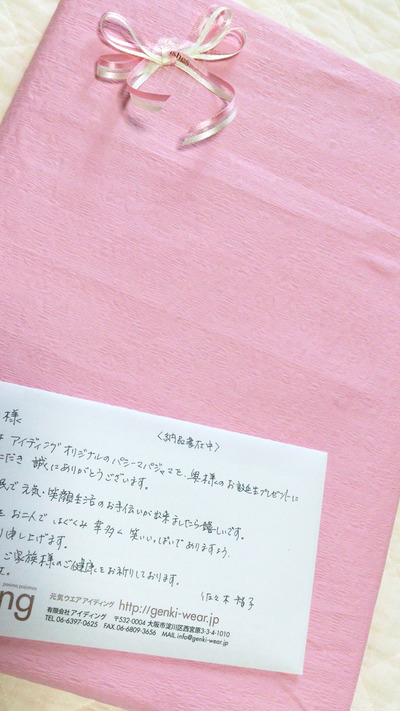 shes
様
〈納品書在中〉
アイディングオリジナルのパシーマパジャマを、奥様のお誕生プレゼントに
ただき 誠にありがとうございます。
民で 元気・笑顔生活のお手伝いが出来ましたら嬉しいです。
お二人で はぐくみ 幸多く 笑いいっぱいでありますよう
申し上げます。
ご家族様のご健康をお祈りしております。
佐々木 智子
ng
元気ウエアアイディング http://genki-wear.jp
有限会社アイディング 〒532-0004 大阪市淀川区西宮原3-3-4-1010
TEL 06-6397-0625 FAX 06-6809-3656 MAIL info@genki-wear.jp